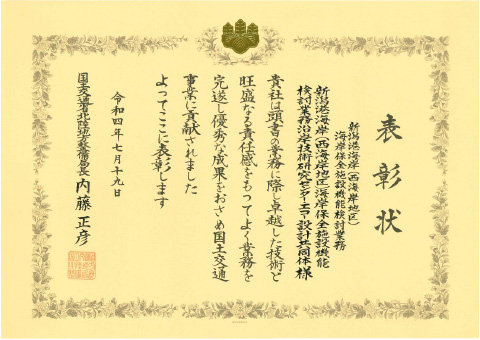 表彰状
新潟港海岸(西海岸地区)
海岸保全施設機能検討業務
新潟港海岸(西海岸地区)海岸保全施設機能
検討業務沿岸技術研究センター・エコー設計共同体 様
貴社は頭書の業務に際し卓越した技術と
旺盛なる責任感をもつてよく業務を
完遂し優秀な成果をおさめ国土交通
事業に貢献されました
よってここに表彰します
令和四年七月十九日
国土交通省北陸地方整備局長 内藤正彦